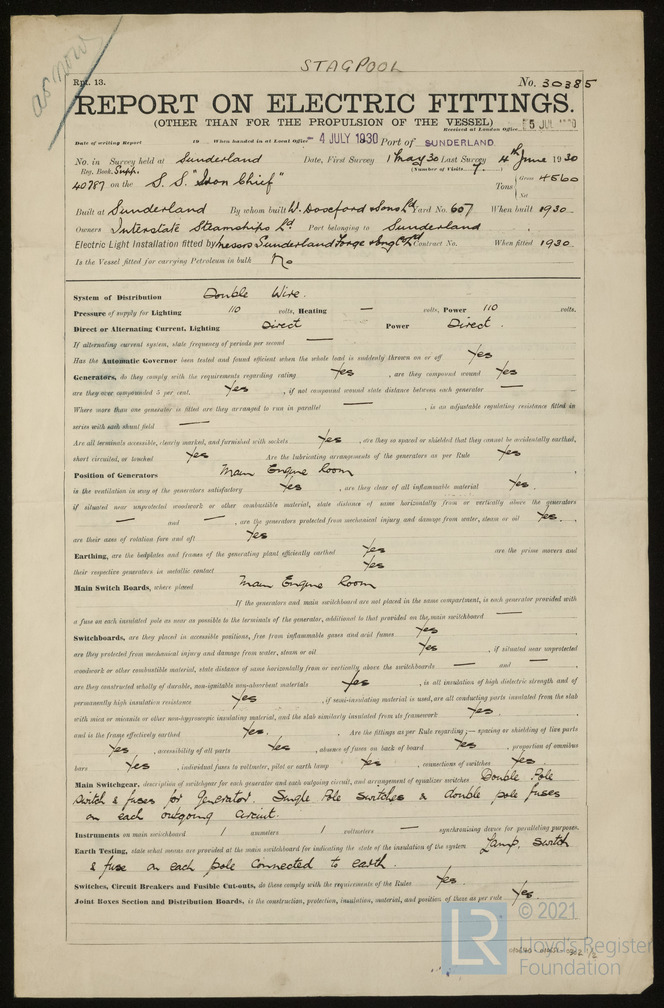 as now
STAGPOOL
Rpt. 13. No. 30385
REPORT ON ELECTRIC FITTINGS.
(OTHER THAN FOR THE PROPULSION OF THE VESSEL)
Received at London Office 5 JUL 1930
Date of writing Report 19 When handed in at Local Office - 4 JULY 1930 Port of SUNDERLAND
No. in Survey held at Sunderland Date, First Survey 1 May 30 Last Survey 4th June 1930
Reg. Book. Supp. (Number of Visits 7.)
40787 on the S. S. "Iron Chief" Tons { Gross 4560
Net
Built at Sunderland By whom built W. Doxford & Sons Ld Yard No. 607 When built 1930
Owners Interstate Steamships Ld. Port belonging to Sunderland
Electric Light Installation fitted by Messrs Sunderland Forge & Eng Co Ld Contract No. When fitted 1930
Is the Vessel fitted for carrying Petroleum in bulk No
System of Distribution Double Wire.
Pressure of supply for Lighting 110 volts, Heating — volts, Power 110 volts.
Direct or Alternating Current, Lighting Direct Power Direct.
If alternating current system, state frequency of periods per second —
Has the Automatic Governor been tested and found efficient when the whole load is suddenly thrown on or off Yes
Generators, do they comply with the requirements regarding rating Yes, are they compound wound Yes
are they over compounded 5 per cent. Yes, if not compound wound state distance between each generator —
Where more than one generator is fitted are they arranged to run in parallel —, is an adjustable regulating resistance fitted in
series with each shunt field —
Are all terminals accessible, clearly marked, and furnished with sockets Yes, are they so spaced or shielded that they cannot be accidentally earthed,
short circuited, or touched Yes Are the lubricating arrangements of the generators as per Rule Yes
Position of Generators Main Engine Room
is the ventilation in way of the generators satisfactory Yes, are they clear of all inflammable material Yes.
if situated near unprotected woodwork or other combustible material, state distance of same horizontally from or vertically above the generators
— and —, are the generators protected from mechanical injury and damage from water, steam or oil Yes.
are their axes of rotation fore and aft Yes
Earthing, are the bedplates and frames of the generating plant efficiently earthed Yes are the prime movers and
their respective generators in metallic contact Yes
Main Switch Boards, where placed Main Engine Room
If the generators and main switchboard are not placed in the same compartment, is each generator provided with
a fuse on each insulated pole as near as possible to the terminals of the generator, additional to that provided on the main switchboard —
Switchboards, are they placed in accessible positions, free from inflammable gases and acid fumes Yes
are they protected from mechanical injury and damage from water, steam or oil Yes, if situated near unprotected
woodwork or other combustible material, state distance of same horizontally from or vertically above the switchboards — and —
are they constructed wholly of durable, non-ignitable non-absorbent materials Yes, is all insulation of high dielectric strength and of
permanently high insulation resistance Yes, if semi-insulating material is used, are all conducting parts insulated from the slab
with mica or micanite or other non-hygroscopic insulating material, and the slab similarly insulated from its framework Yes.
and is the frame effectively earthed Yes. Are the fittings as per Rule regarding:— spacing or shielding of live parts
Yes, accessibility of all parts Yes, absence of fuses on back of board Yes, proportion of omnibus
bars Yes, individual fuses to voltmeter, pilot or earth lamp Yes, connections of switches Yes.
Main Switchgear, description of switchgear for each generator and each outgoing circuit, and arrangement of equalizer switches Double Pole
switch & fuses for Generator. Single Pole switches & double pole fuses
on each outgoing circuit.
Instruments on main switchboard 1 ammeters 1 voltmeters — synchronising device for paralleling purposes.
Earth Testing, state what means are provided at the main switchboard for indicating the state of the insulation of the system Lamp, switch
& fuse on each pole connected to earth.
Switches, Circuit Breakers and Fusible Cut-outs, do these comply with the requirements of the Rules Yes.
Joint Boxes Section and Distribution Boards, is the construction, protection, insulation, material, and position of these as per rule Yes.
LR © 2021
Lloyd's Register
Foundation